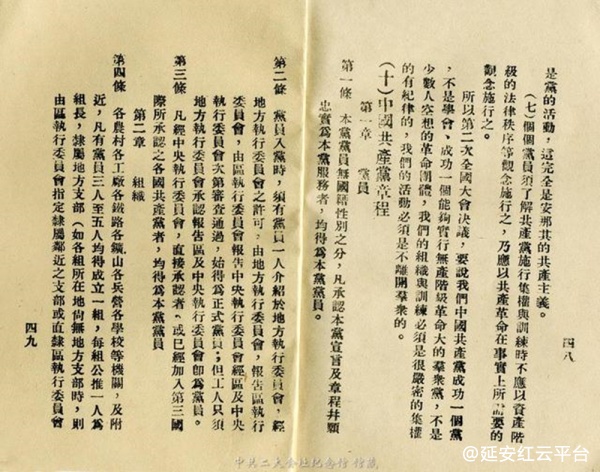 四八
是黨的活動，這完全是安那其的共產主義。
（七）個個黨員須了解共產黨施行集權與訓練時不應以資產階
級的法律秩序等觀念施行之，乃應以共產革命在事實上所需要的
觀念施行之。
所以第二次全國大會決議，要說我們中國共產黨成功一個黨
，不是學會，成功一個能夠實行無產階級革命大的羣衆黨，不是
少數人空想的革命團體，我們的組織與訓練必須是很嚴密的集權
的有紀律的，我們的活動必須是不離開羣衆的。
（十）中國共產黨章程
第一章　黨員
第一條　本黨黨員無國籍性別之分，凡承認本黨宣言及章程幷願
忠實爲本黨服務者，均得爲本黨黨員。
第二條　黨員入黨時，須有黨員一人介紹於地方執行委員會，經
地方執行委員會之許可，由地方執行委員會，報告區執行
委員會，由區執行委員會報告中央執行委員會經區及中央
執行委員會次第審查通過，始得爲正式黨員；但工人只須
地方執行委員會承認報告區及中央執行委員會卽爲黨員。
第三條　凡經中央執行委員會，直接承認者，或已經加入第三國
際所承認之各國共產黨者，均得爲本黨黨員
第二章　組織
第四條　各農村各工廠各鐵路各鑛山各兵營各學校等機關，及附
近，凡有黨員三人至五人均得成立一組，每組公推一人爲
組長，隸屬地方支部（如各組所在地尙無地方支部時，則
由區執行委員會指定隸屬鄰近之支部或直隸區執行委員會
四九
中共二大会址纪念馆 馆藏
@延安红云平台